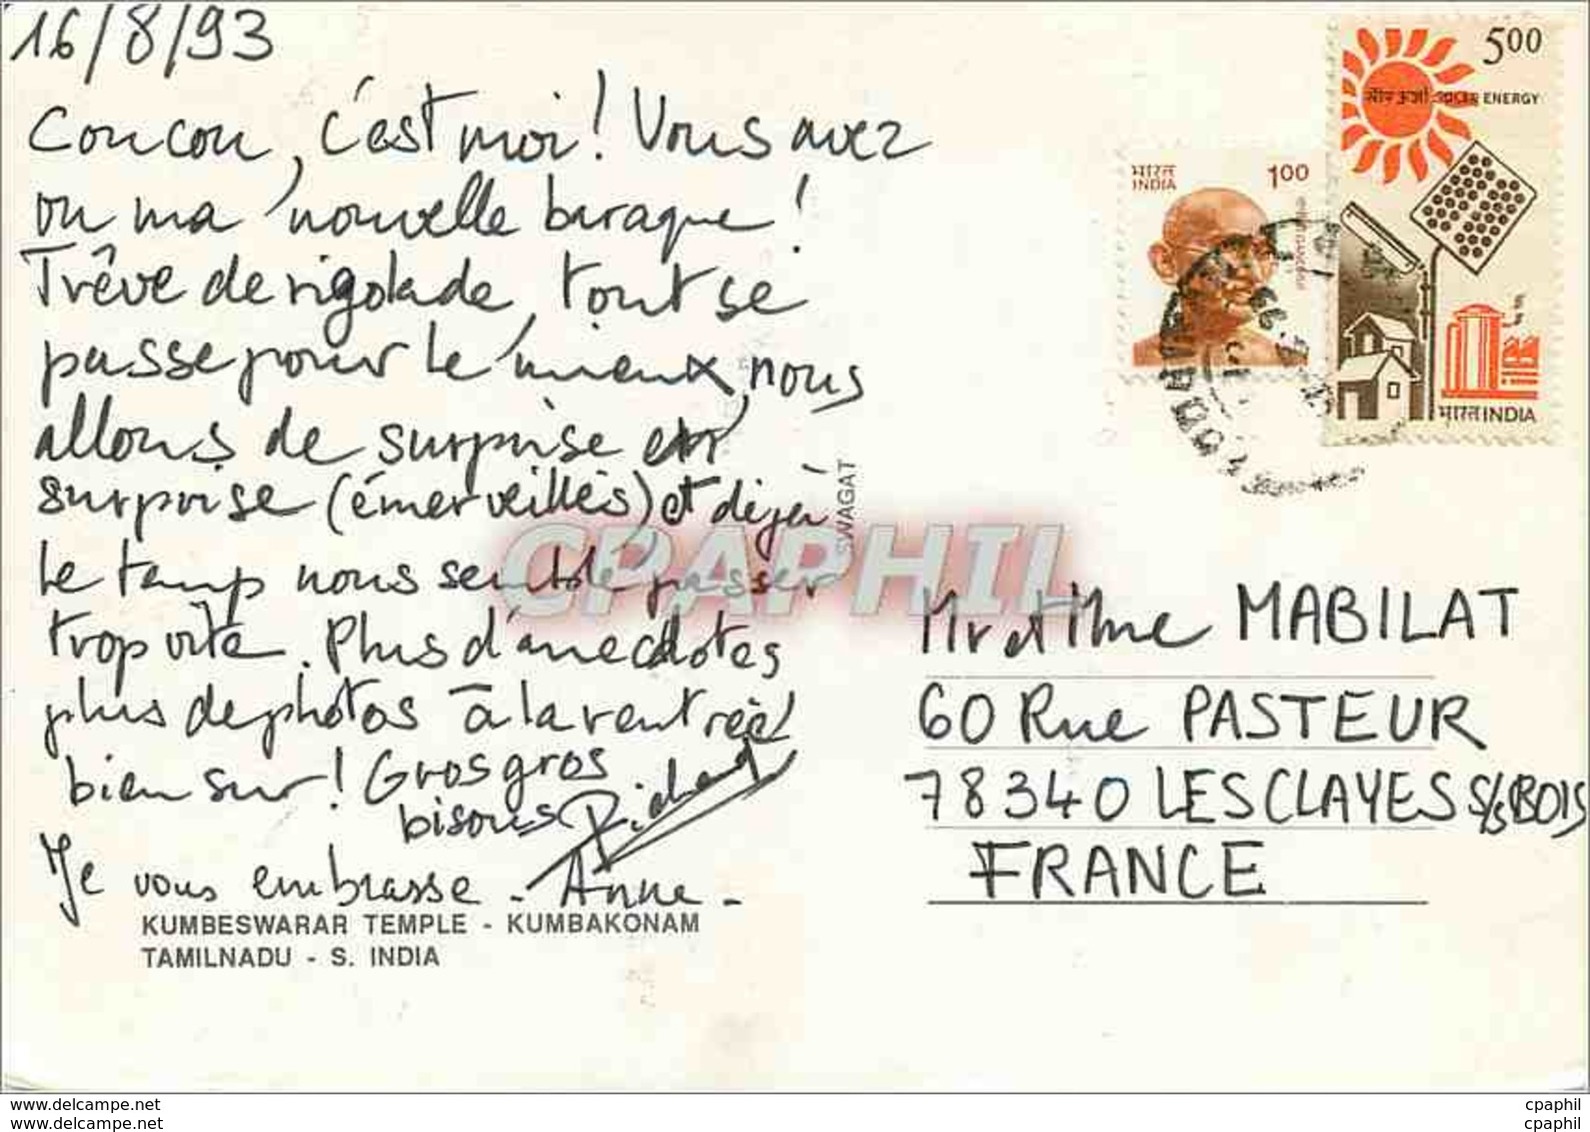 16/8/93
Coucou, c'est moi! Vous avez
vu ma nouvelle baraque!
Trêve de rigolade, tout se
passe pour le mieux, nous
allons de surprise en
surprise (émerveillés) et déjà
le temps nous semble passer
trop vite. Plus d'anecdotes
plus de photos à la rentrée
bien sur! Gros gros
bisous Richard
Je vous embrasse - Anne -
KUMBESWARAR TEMPLE - KUMBAKONAM
TAMILNADU - S. INDIA
SWAGAT
CPAPHIL
भारत
INDIA
1.00
5.00
सौर ऊर्जा SOLAR ENERGY
भारत INDIA
Mr et Mme MABILAT
60 Rue PASTEUR
78340 LES CLAYES S/S BOIS
FRANCE
www.delcampe.net cpaphil
www.delcampe.net cpaphil